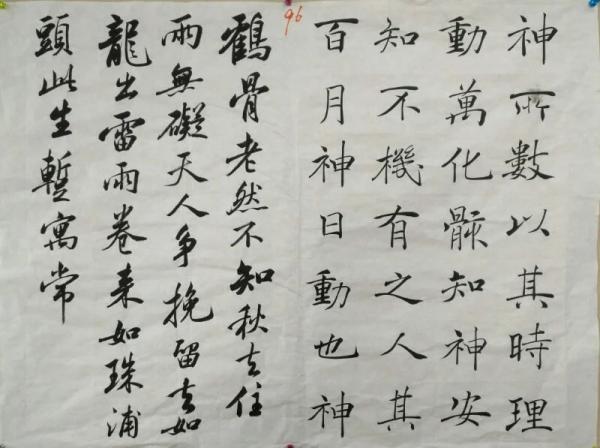 96
神所數以其時理
動萬化骸知神安
知不機有之人其
百月神日動也神
鶴骨老然不知秋去住
兩無礙天人争挽留去如
龍出雷雨卷来如珠浦
頭此生蹔寓常